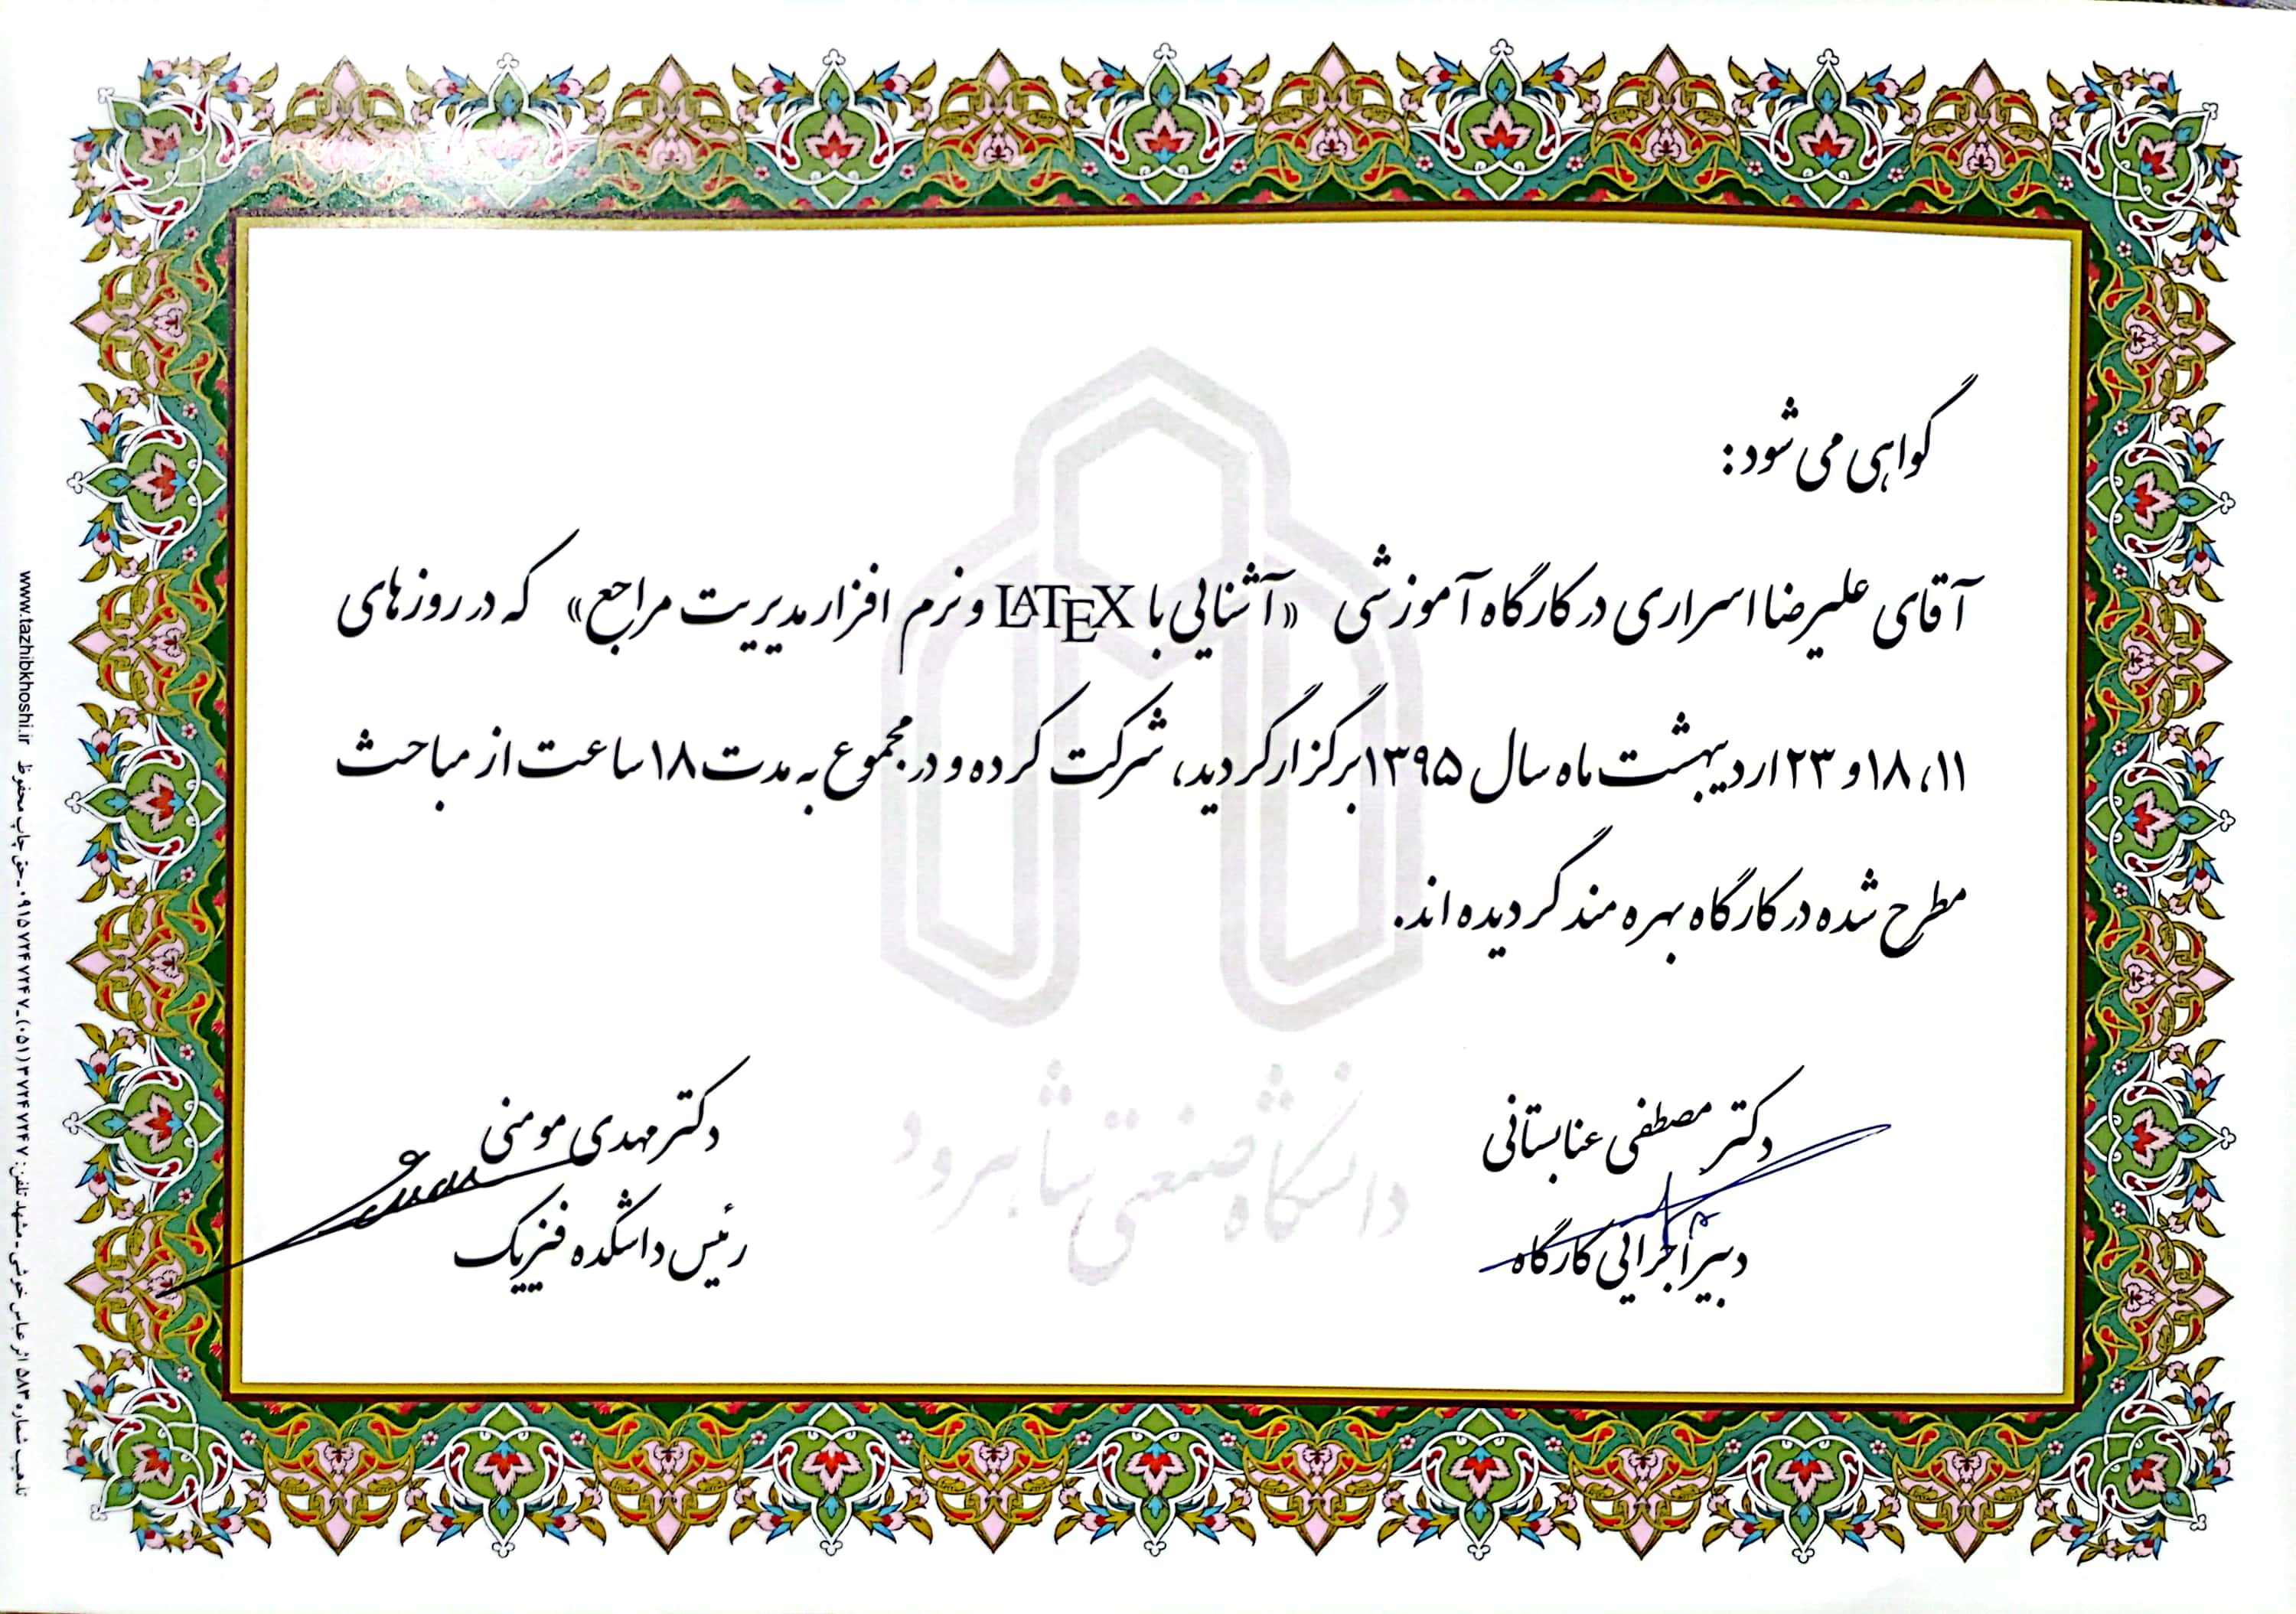 گواهی می شود:
آقای علیرضا اسراری در کارگاه آموزشی «آشنایی با LATEX و نرم افزار مدیریت مراجع» که در روزهای
۱۱، ۱۸ و ۲۳ اردیبهشت ماه سال ۱۳۹۵ برگزار گردید، شرکت کرده و در مجموع به مدت ۱۸ ساعت از مباحث
مطرح شده در کارگاه بهره مند گردیده اند.
دکتر مصطفی عنابستانی
دبیر اجرایی کارگاه
دکتر مهدی مومنی
رئیس دانشکده فیزیک
دانشگاه صنعتی شاهرود
تذهیب شماره ۵۸۳ اثر عباس خوشی - مشهد تلفن: ۳۷۲۴۷۲۴۷ (۰۵۱) - ۰۹۱۵۷۲۴۷۲۴۷ - حق چاپ محفوظ www.tazhibkhoshi.ir